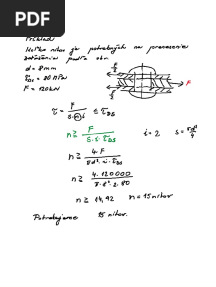 PDF
Príklad:
Koľko nitov je potrebných na prenesenie
zaťaženia podľa obr.
d = 8mm
τDS = 80 MPa
F = 120kN
F/2
F/2
F
τ = F / S.n.i ≤ τDS
n ≥ F / S.i.τDS i = 2 S = πd² / 4
n ≥ 4.F / πd².i.τDS
n ≥ 4.120000 / π.8².2.80
n ≥ 14,92 n = 15 nitov
Potrebujeme 15 nitov.